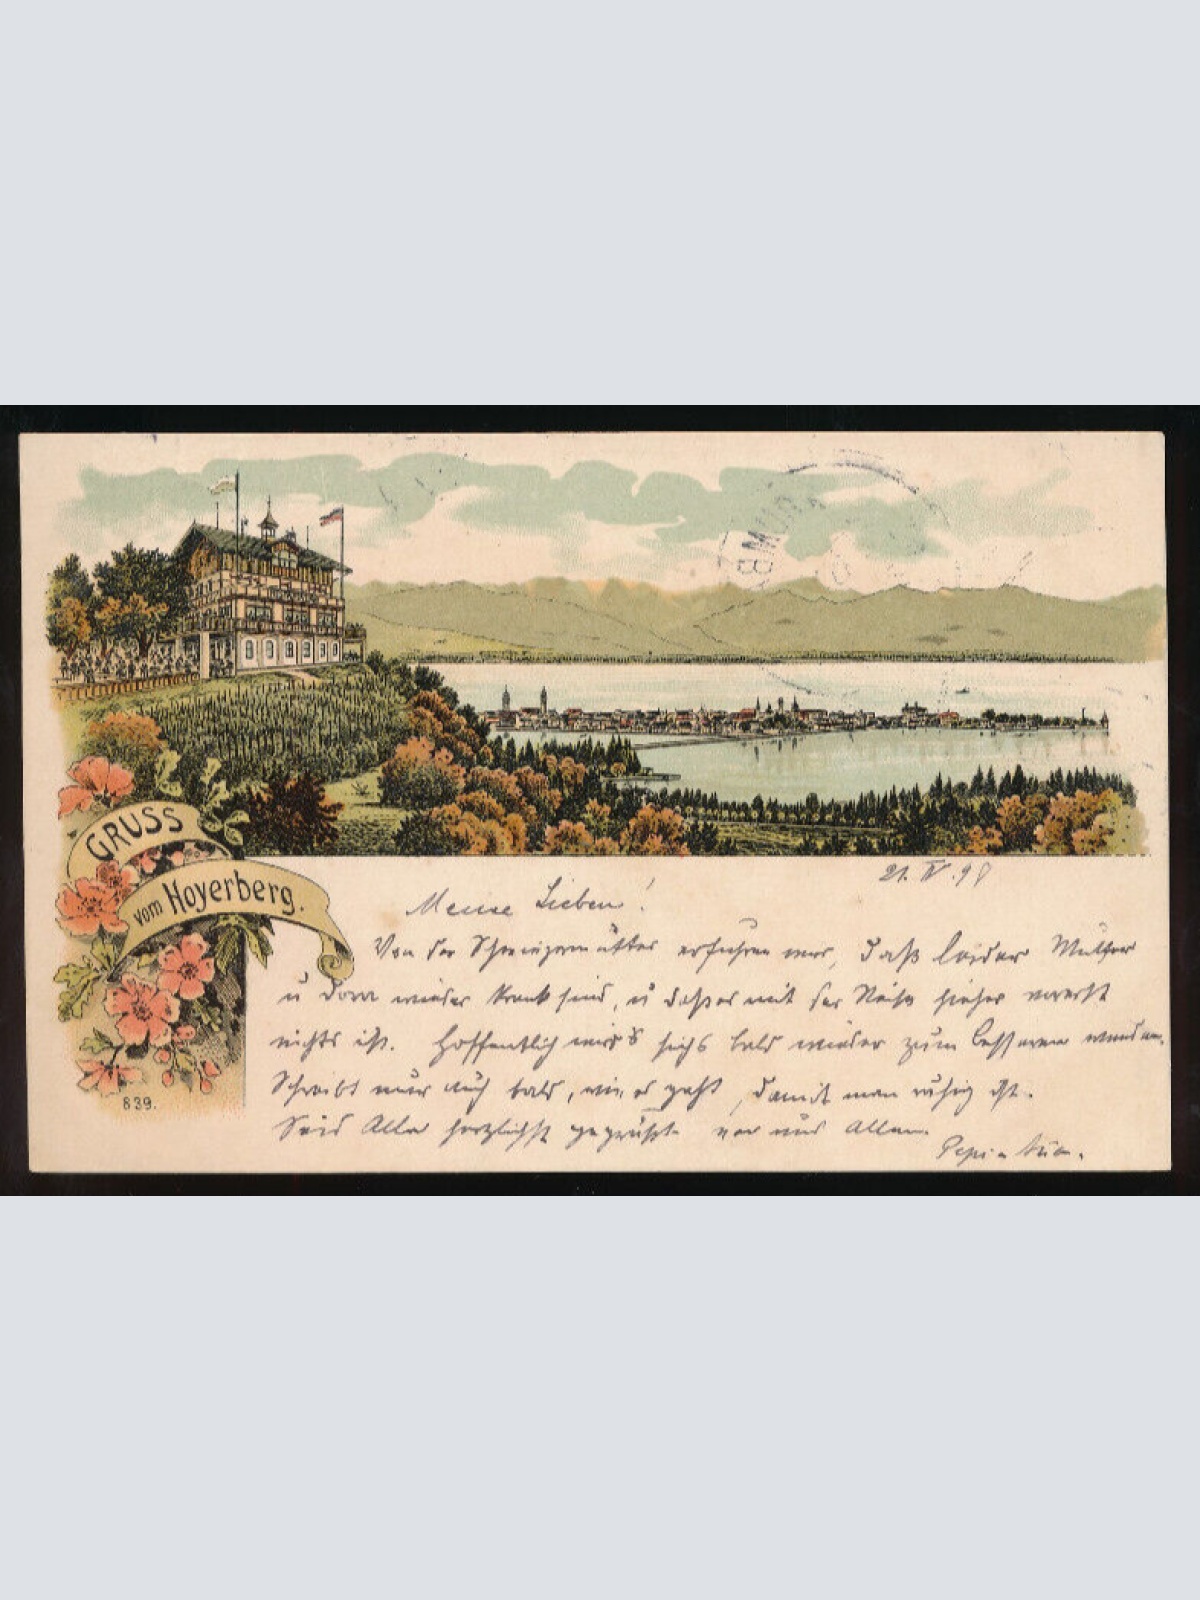 GRUSS
vom Hoyerberg.
839.
21. IV. 98
Meine Lieben!
Von der Schwiegermutter erfuhren wir, daß leider Mutter
u Dora wieder krank sind, u daß es mit der Reise hieher vorerst
nichts ist. Hoffentlich wird's sich bald wieder zum besseren wenden.
Schreibt nur auch bald, wie es geht, damit man ruhig ist.
Seid Alle herzlichst gegrüßt von uns Allen.